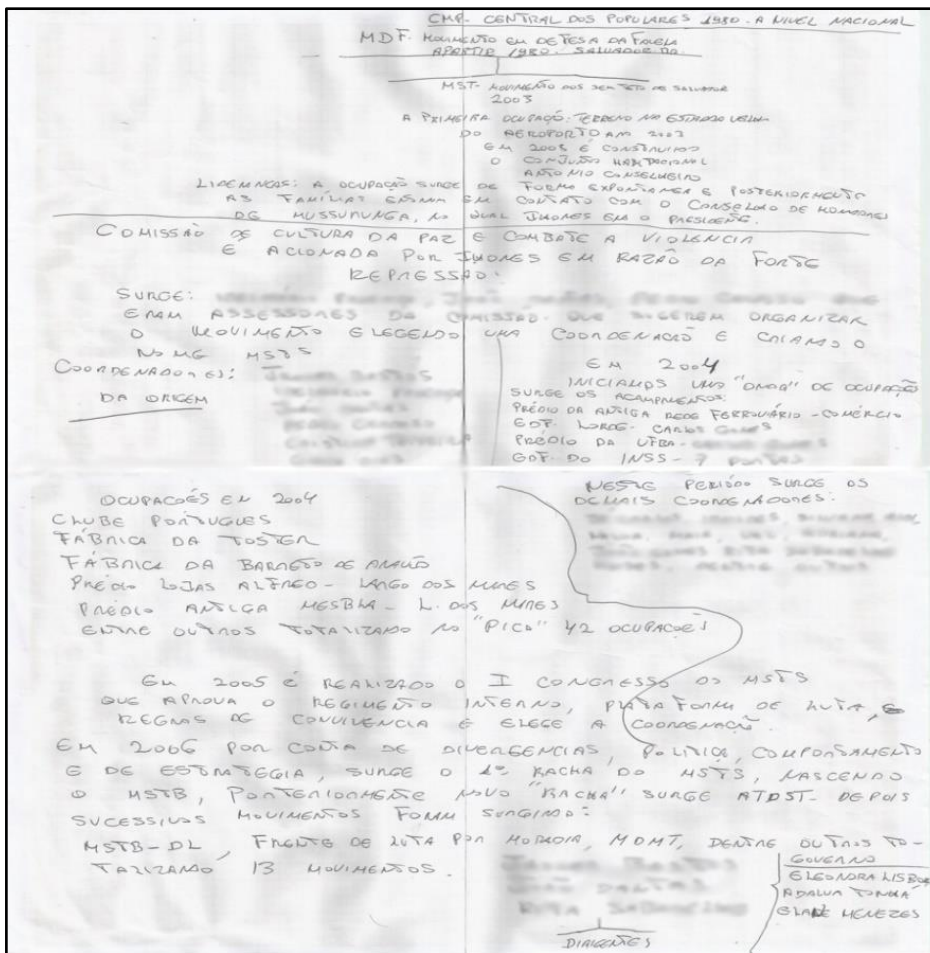 CMP- CENTRAL DOS POPULARES 1980. A NIVEL NACIONAL
MDF- MOVIMENTO EM DEFESA DA FAVELA
APARTIR 1980. SALVADOR
MST- MOVIMENTO DOS SEM TETO DE SALVADOR
2003
A PRIMEIRA OCUPAÇÃO: TERRENO NA ESTRADA VELHA
DO AEROPORTO AM 2003
EM 2008 É CONSTRUIDO
O CONJUNTO HABITACIONAL
ANTONIO CONSELHEIRO
LIDERANÇAS: A OCUPAÇÃO SURGE DE FORMA EXPONTANEA E POSTERIORMENTE
AS FAMÍLIAS EM CONTATO COM O CONSELHO DE MORADORES
DE MUSSURUNGA, NO QUAL JHONES ERA O PRESIDENTE.
COMISSÃO DE CULTURA DA PAZ E COMBATE A VIOLENCIA
É ACIONADA POR JHONES EM RAZÃO DA FORTE
REPRESSÃO.
SURGE:
ERAM ASSESSORES DA COMISSÃO. QUE SUGEREM ORGANIZAR
O MOVIMENTO ELEGENDO UMA COORDENAÇÃO E CRIANDO O
NOME MSTS
COORDENADORES:
DA ORIGEM
EM 2004
INICIAMOS UMA "ONDA" DE OCUPAÇÃO
SURGE OS ACAMPAMENTOS:
PRÉDIO DA ANTIGA REDE FERROVIÁRIO - COMÉRCIO
EDF. LORDE- CARLOS GOMES
PRÉDIO DA UFBA-
EDF. DO INSS- 7 PORTAS
OCUPACOÉS EM 2004
CLUBE PORTUGUES
FÁBRICA DA TOSTER
FÁBRICA DA BARRETO DE ARAÚJO
PRÉDIO LOJAS ALFREO- LARGO DOS MARES
PRÉDIO ANTIGA MESBLA- L. DOS MARES
ENTRE OUTROS TOTALIZADO NO "PICO" 42 OCUPACOÉS
NESTE PERÍODO SURGE OS
DEMAIS COORDENADORES:
EM 2005 É REALIZADO O I CONGRESSO DO MSTS
QUE APROVA O REGIMENTO INTERNO, PLATAFORMA DE LUTA, E
REGRAS DE CONVIVENCIA E ELEGE A COORDENAÇÃO.
EM 2006 POR CONTA DE DIVERGENCIAS, POLITICA, COMPORTAMENTO
E DE ESTRATEGIA, SURGE O 1º RACHA DO MSTS, NASCENDO
O MSTB, POSTERIORMENTE NOVO "RACHA" SURGE ATDST- DEPOIS
SUCESSIVOS MOVIMENTOS FORAM SURGINDO:
MSTB-DL, FRENTE DE LUTA POR MORADIA, MDMT, DENTRE OUTROS TO-
TALIZANDO 13 MOVIMENTOS.
GOVERNO
ELEONORA LISBOA
ADALVA TONHÁ
ELANE MENEZES
DIRIGENTES